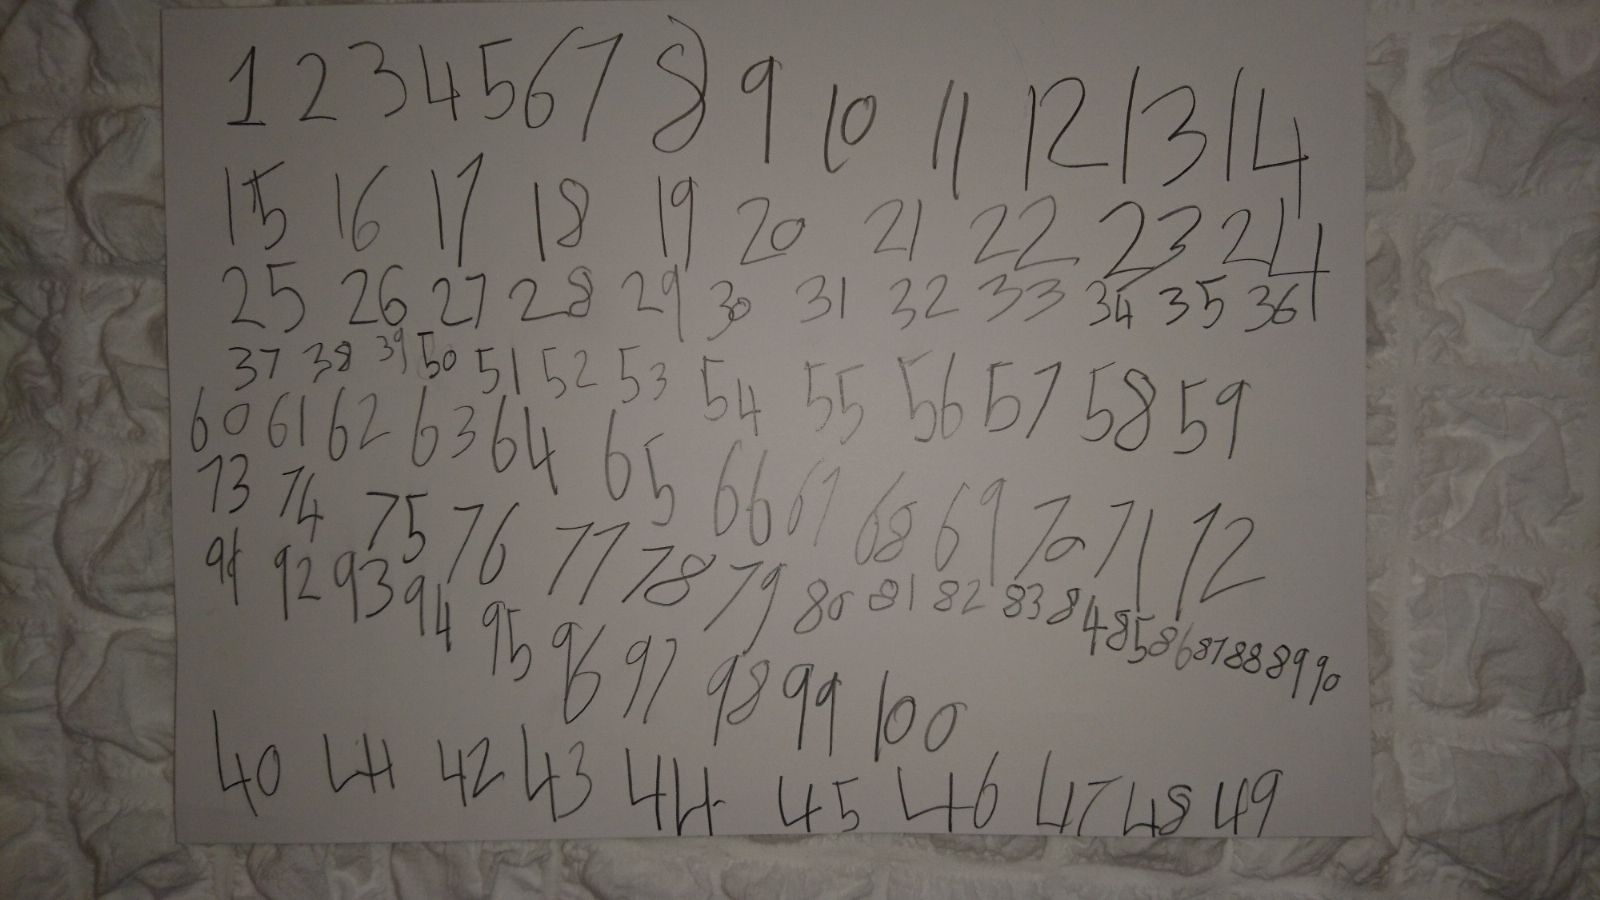 1 2 3 4 5 6 7 8 9 10 11 12 13 14
15 16 17 18 19 20 21 22 23 24
25 26 27 28 29 30 31 32 33 34 35 36
37 38 39 50 51 52 53 54 55 56 57 58 59
60 61 62 63 64 65 66 67 68 69 70 71 72
73 74 75 76 77 78 79 80 81 82 83 84 85 86 87 88 89 90
91 92 93 94 95 96 97 98 99 100
40 41 42 43 44 45 46 47 48 49